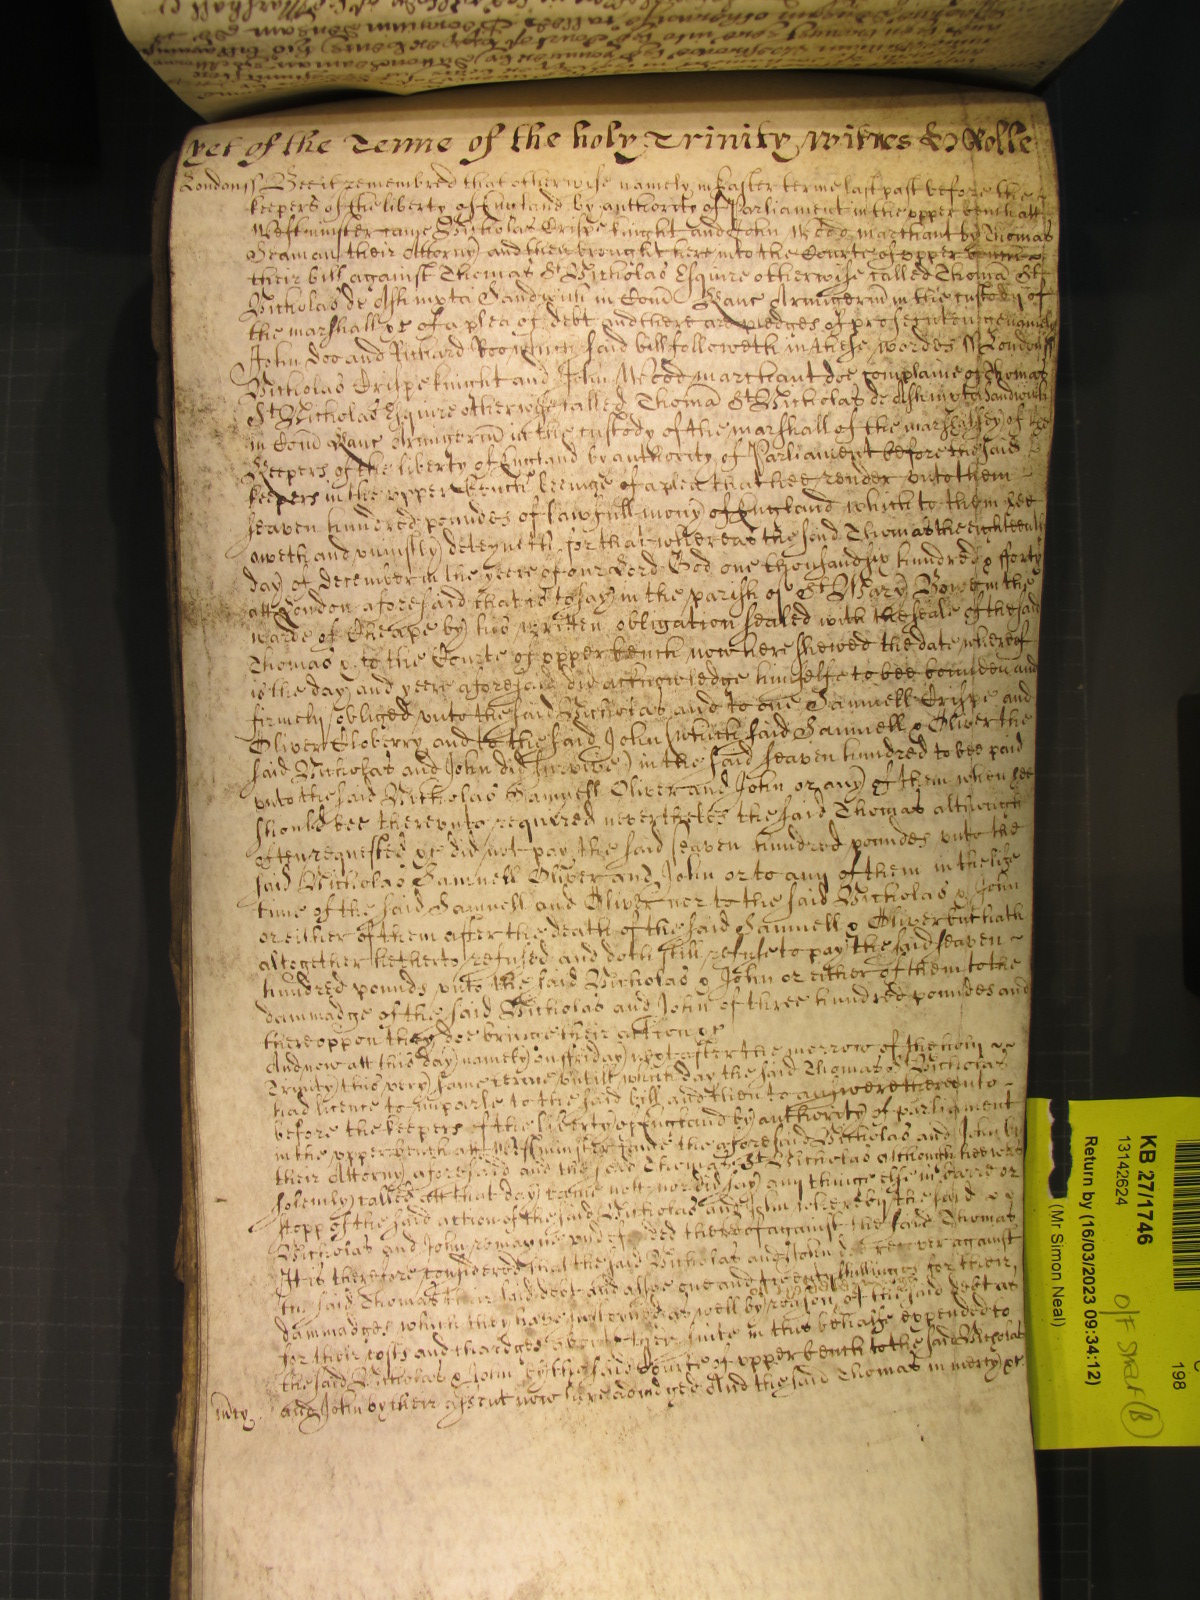 yet of the Terme of the holy Trinity witnes Rolle
London ss Bee it remembred that otherwise namely in Easter terme last past before the
keepers of the liberty of England by authority of Parliament in the upper bench att
Westminster came Nicholas Crispe knight and John Wood marchant by Thomas
Seaman their Attorny and then brought here into the Courte of upper bench
their bill against Thomas St Nicholas Esquire otherwise called Thoma St
Nicholas de Ash iuxta Sandwich in Com Kanc Armigerum in the custody of
the marshall &c of a plea of debt and there are pledges of prosecuteing namely
John Doo and Richard Roo which said bill followeth in these wordes ss London ss
Nicholas Crispe knight and John Wood marchant doe complaine of Thomas
St Nicholas Esquire otherwise called Thoma St Nicholas de Ash iuxta Sandwich
in Com Kanc Armigerum in the custody of the marshall of the marshalsey of the
Keepers of the liberty of England by authority of Parliament before the said
keepers in the upper bench beeinge of a plea that hee render unto them
seaven hundred poundes of lawfull mony of England which to them hee
oweth and uniustly deteyneth for that whereas the said Thomas the eighteenth
day of December in the yeere of our Lord God one thousand six hundred & fforty
att London aforesaid that is to say in the parish of St Mary Bowe in the
warde of Cheape by his written obligation sealed with the seale of the said
Thomas & to the Courte of upper bench now here shewed the date whereof
is the day and yeere aforesaid did acknowledge himselfe to bee bounden and
firmely obliged unto the said Nicholas and to one Samuell Crispe and
Oliver Cloberry and to the said John (which said Samuell & Oliver the
said Nicholas and John did survive) in the said seaven hundred to bee paid
unto the said Nicholas Samuell Oliver and John or any of them when hee
should bee thereunto required neverthelesse the said Thomas although
often requested &c did not pay the said seaven hundred poundes unto the
said Nicholas Samuell Oliver and John or to any of them in the life
time of the said Samuell and Oliver nor to the said Nicholas & John
or either of them after the death of the said Samuell & Oliver but hath
altogether hetherto refused and doth still refuse to pay the said seaven
hundred pounds unto the said Nicholas & John or either of them to the
dammadge of the said Nicholas and John of three hundred poundes and
thereoppon they doe bringe their action &c
And now att this day namely on ffriday next after the morrow of the holy
Trinity this very same terme untill which day the said Thomas St Nicholas
had licence to imparle to the said bill and then to answere thereunto
before the keepers of the liberty of England by authority of parliament
in the upper bench att Westminster came the aforesaid Nicholas and John by
their Attorny aforesaid and the said Thomas St Nicholas although hee were
solemly called att that day came nott nor did say any thinge else in barre or
stopp of the said action of the said Nicholas and John whereby the said
Nicholas and John remayne undefended thereof against the said Thomas
It is therefore considered that the said Nicholas and John doe recover against
the said Thomas their said debt and alsoe one and twenty shillinges for their
dammadges which they have susteyned as well by reason of the said debt as
for their costs and chardges about their suite in this behalfe expended to
the said Nicholas & John by the said Courte of upper bench to the said Nicholas
and John by their assent now here adiudged And the said Thomas in mercy &c
mcy
KB 27/1746
13142624
Return by (16/03/2023 09:34:12)
(Mr Simon Neal)
198